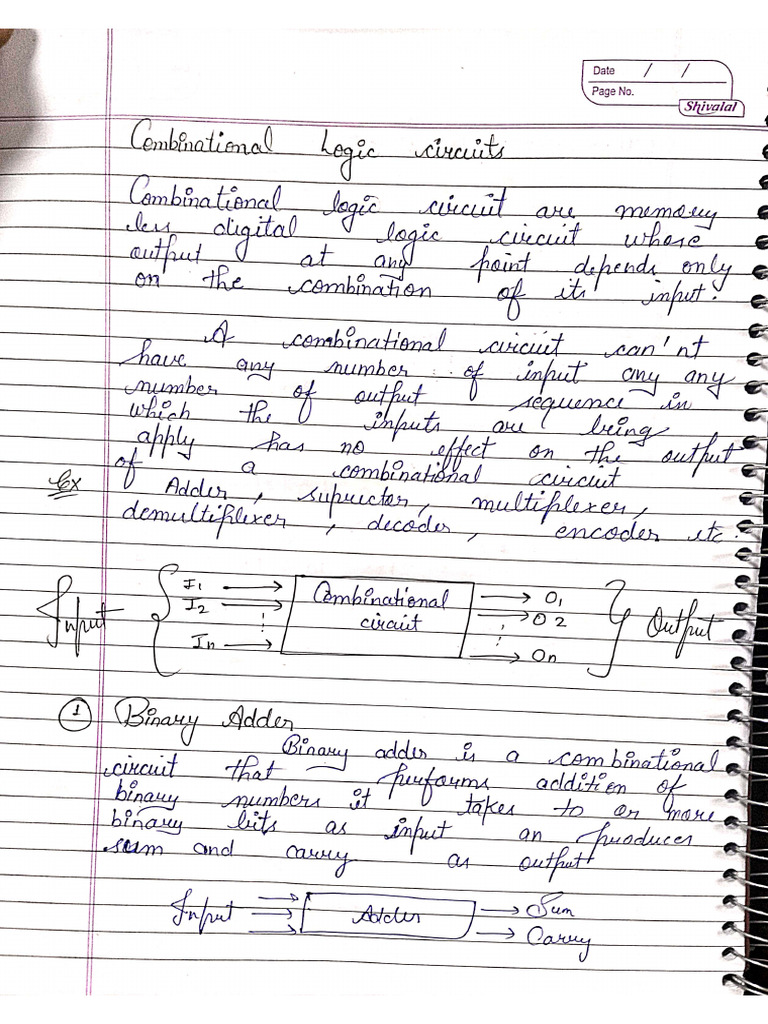 Date / /
Page No.
Shivalal
Combinational Logic circuits
Combinational logic circuit are memory
less digital logic circuit whose
output at any point depends only
on the combination of its input.
A combinational circuit can'nt
have any number of input any any
number of output sequence in
which the inputs are being
apply has no effect on the output
of a combinational circuit
Ex Adder, supructor, multiplexer,
demultiplexer, decoder, encoder etc.
Input { I1 → Combinational circuit → O1 } Output
I2 → → O2
In → → On
① Binary Adder
Binary adder is a combinational
circuit that performs addition of
binary numbers it takes to or more
binary bits as input an producer
sum and carry as output
Input → Adder → Sum
→ Carry